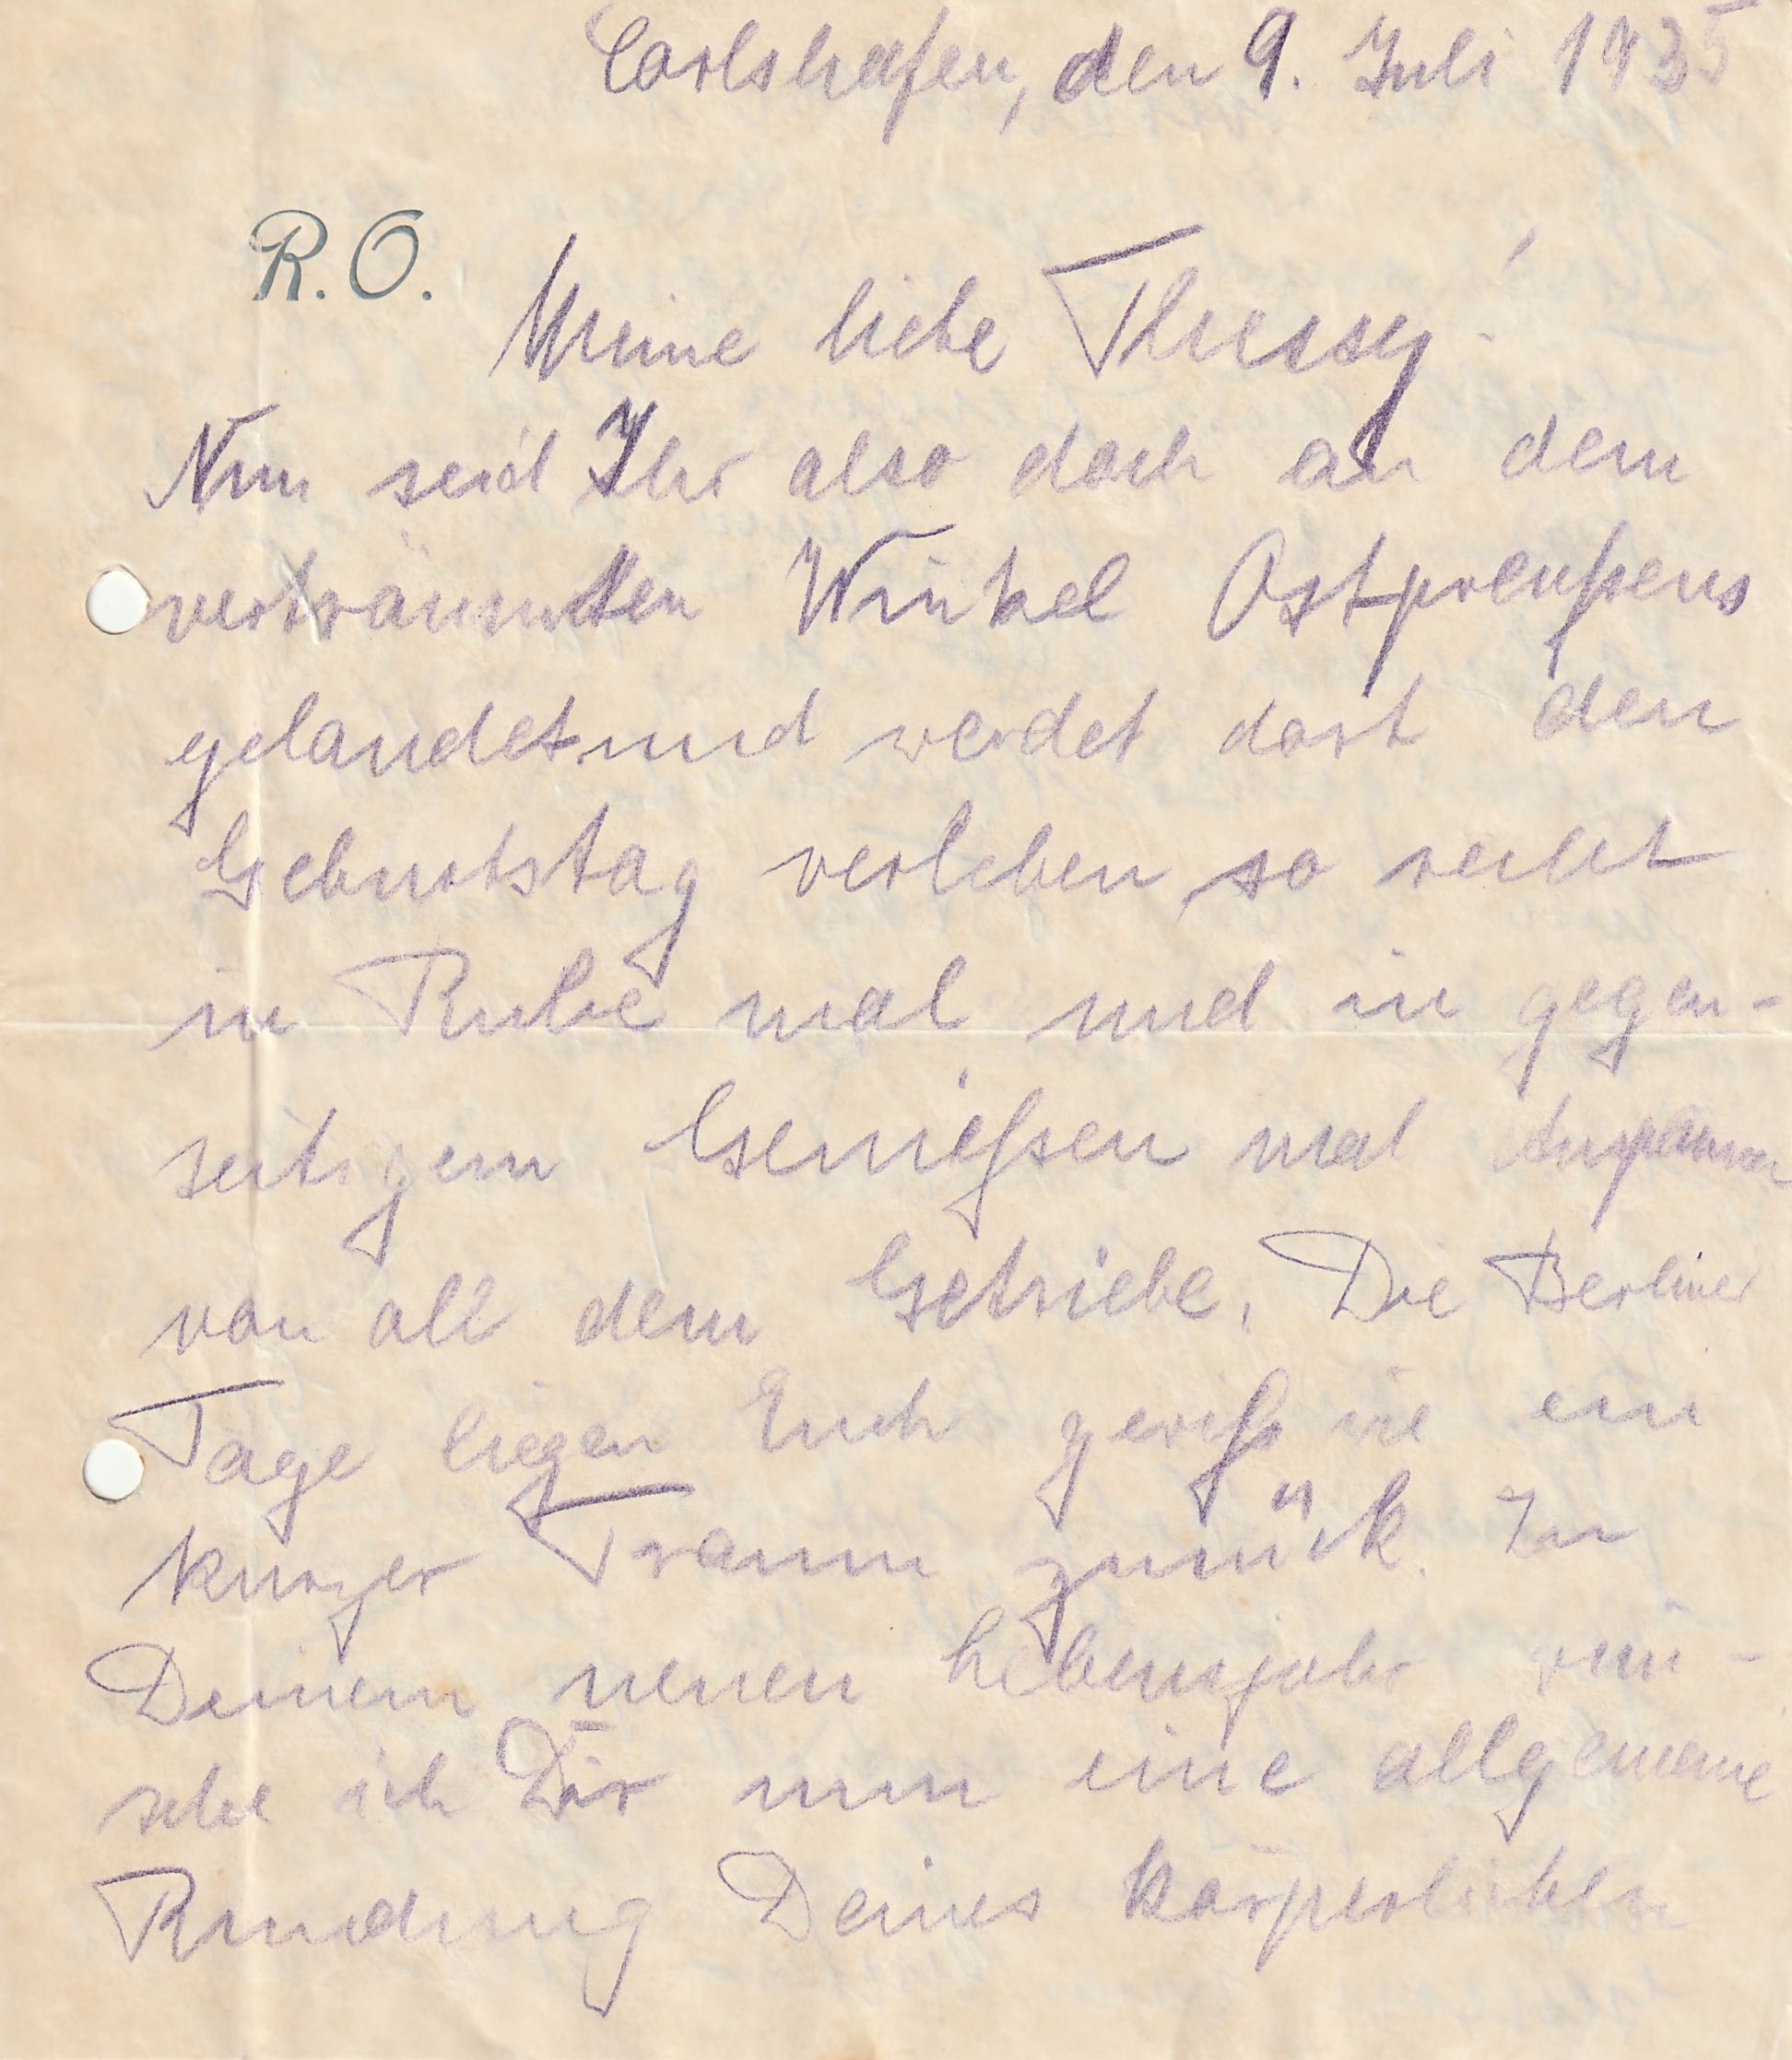 Carlshafen, den 9. Juli 1935
R.O.
Meine liebe Thessy!
Nun seid Ihr also doch an dem
verträumten Winkel Ostpreußens
gelandet und werdet dort den
Geburtstag verleben, so recht
in Ruhe mal und in gegen-
seitigem Genießen mal
von all dem Getriebe. Die Berliner
Tage liegen Euch gewiß wie ein
kurzer Traum zurück. Zu
Deinem neuen Lebensjahr wün-
sche ich Dir nun eine allgemeine
Rundung Deines körperlichen